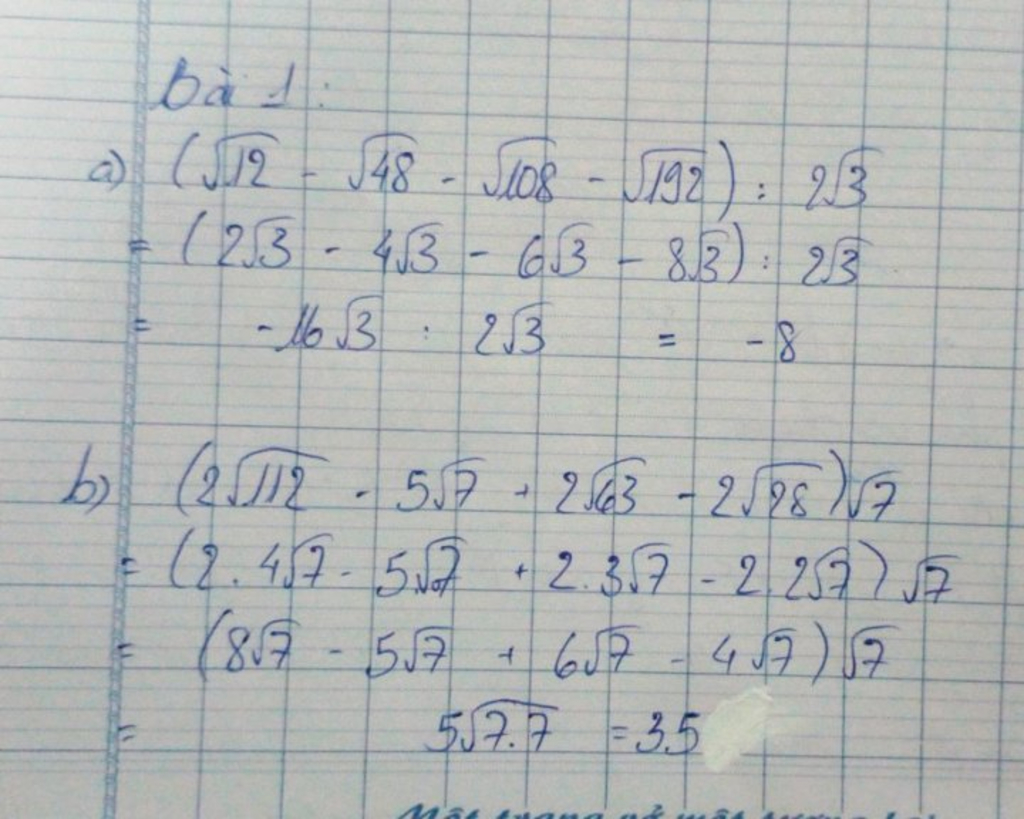 Bài 1:
a) (√12 - √48 - √108 - √192) : 2√3
= (2√3 - 4√3 - 6√3 - 8√3) : 2√3
= -16√3 : 2√3 = -8
b) (2√112 - 5√7 + 2√63 - 2√28)√7
= (2.4√7 - 5√7 + 2.3√7 - 2.2√7)√7
= (8√7 - 5√7 + 6√7 - 4√7)√7
= 5√7.7 = 35